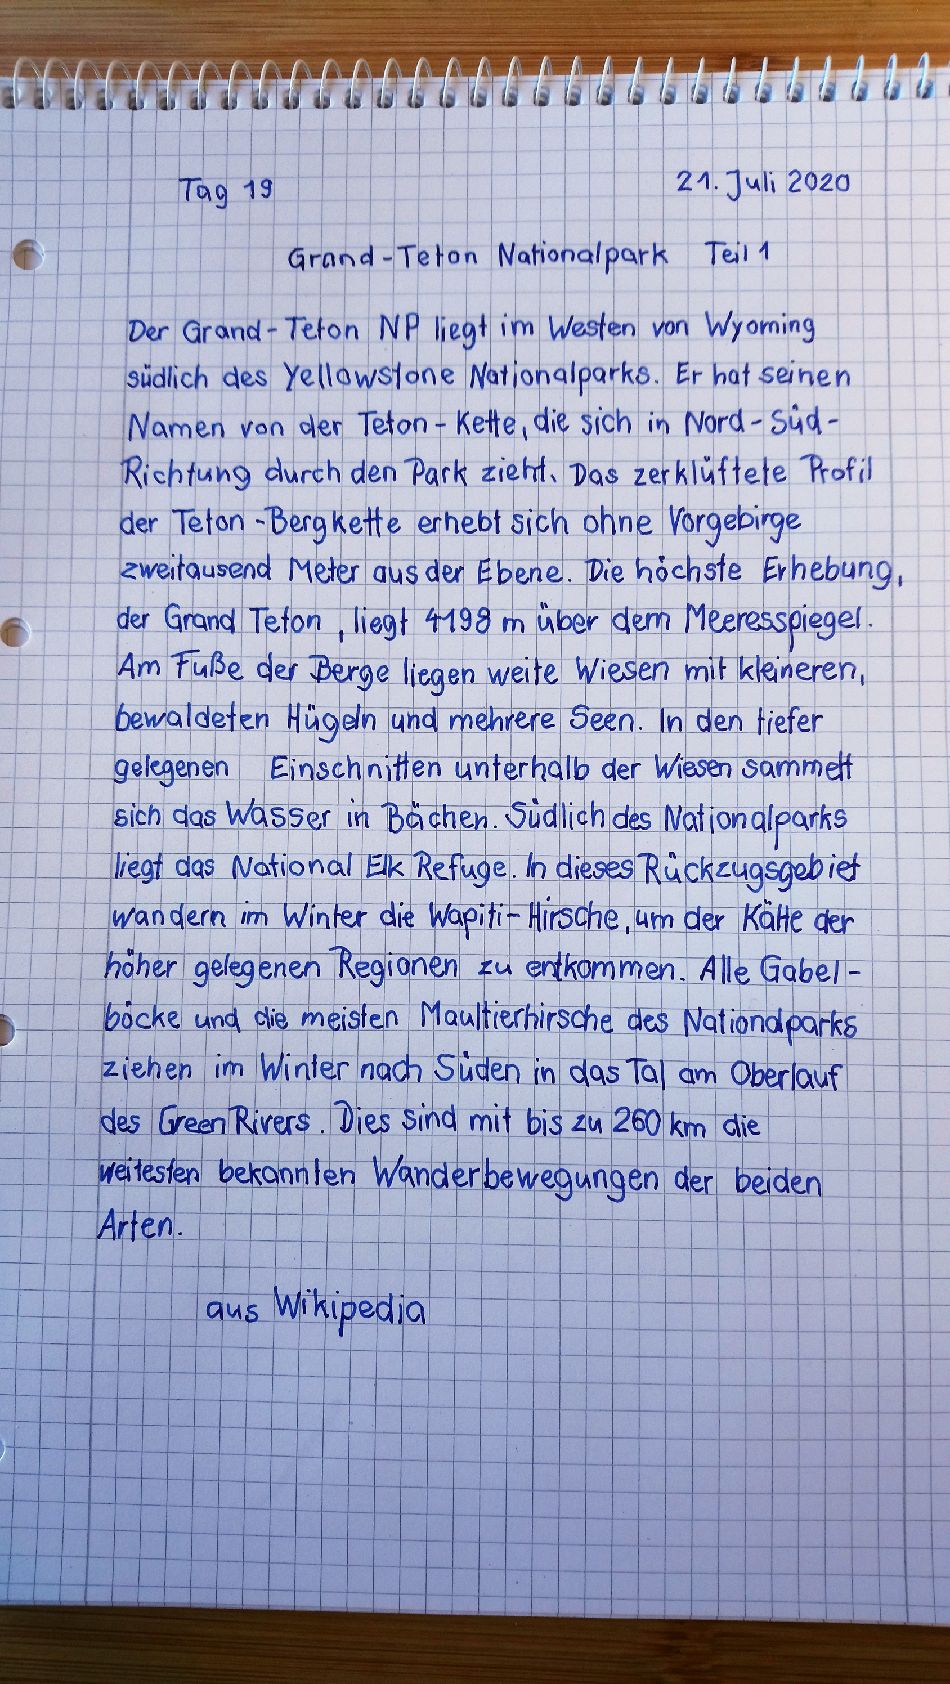 Tag 19 21. Juli 2020
Grand-Teton Nationalpark Teil 1
Der Grand-Teton NP liegt im Westen von Wyoming
südlich des Yellowstone Nationalparks. Er hat seinen
Namen von der Teton-Kette, die sich in Nord-Süd-
Richtung durch den Park zieht. Das zerklüftete Profil
der Teton-Bergkette erhebt sich ohne Vorgebirge
zweitausend Meter aus der Ebene. Die höchste Erhebung,
der Grand Teton, liegt 4198 m über dem Meeresspiegel.
Am Fuße der Berge liegen weite Wiesen mit kleineren,
bewaldeten Hügeln und mehrere Seen. In den tiefer
gelegenen Einschnitten unterhalb der Wiesen sammelt
sich das Wasser in Bächen. Südlich des Nationalparks
liegt das National Elk Refuge. In dieses Rückzugsgebiet
wandern im Winter die Wapiti-Hirsche, um der Kälte der
höher gelegenen Regionen zu entkommen. Alle Gabel-
böcke und die meisten Maultierhirsche des Nationalparks
ziehen im Winter nach Süden in das Tal am Oberlauf
des Green Rivers. Dies sind mit bis zu 260 km die
weitesten bekannten Wanderbewegungen der beiden
Arten.
aus Wikipedia